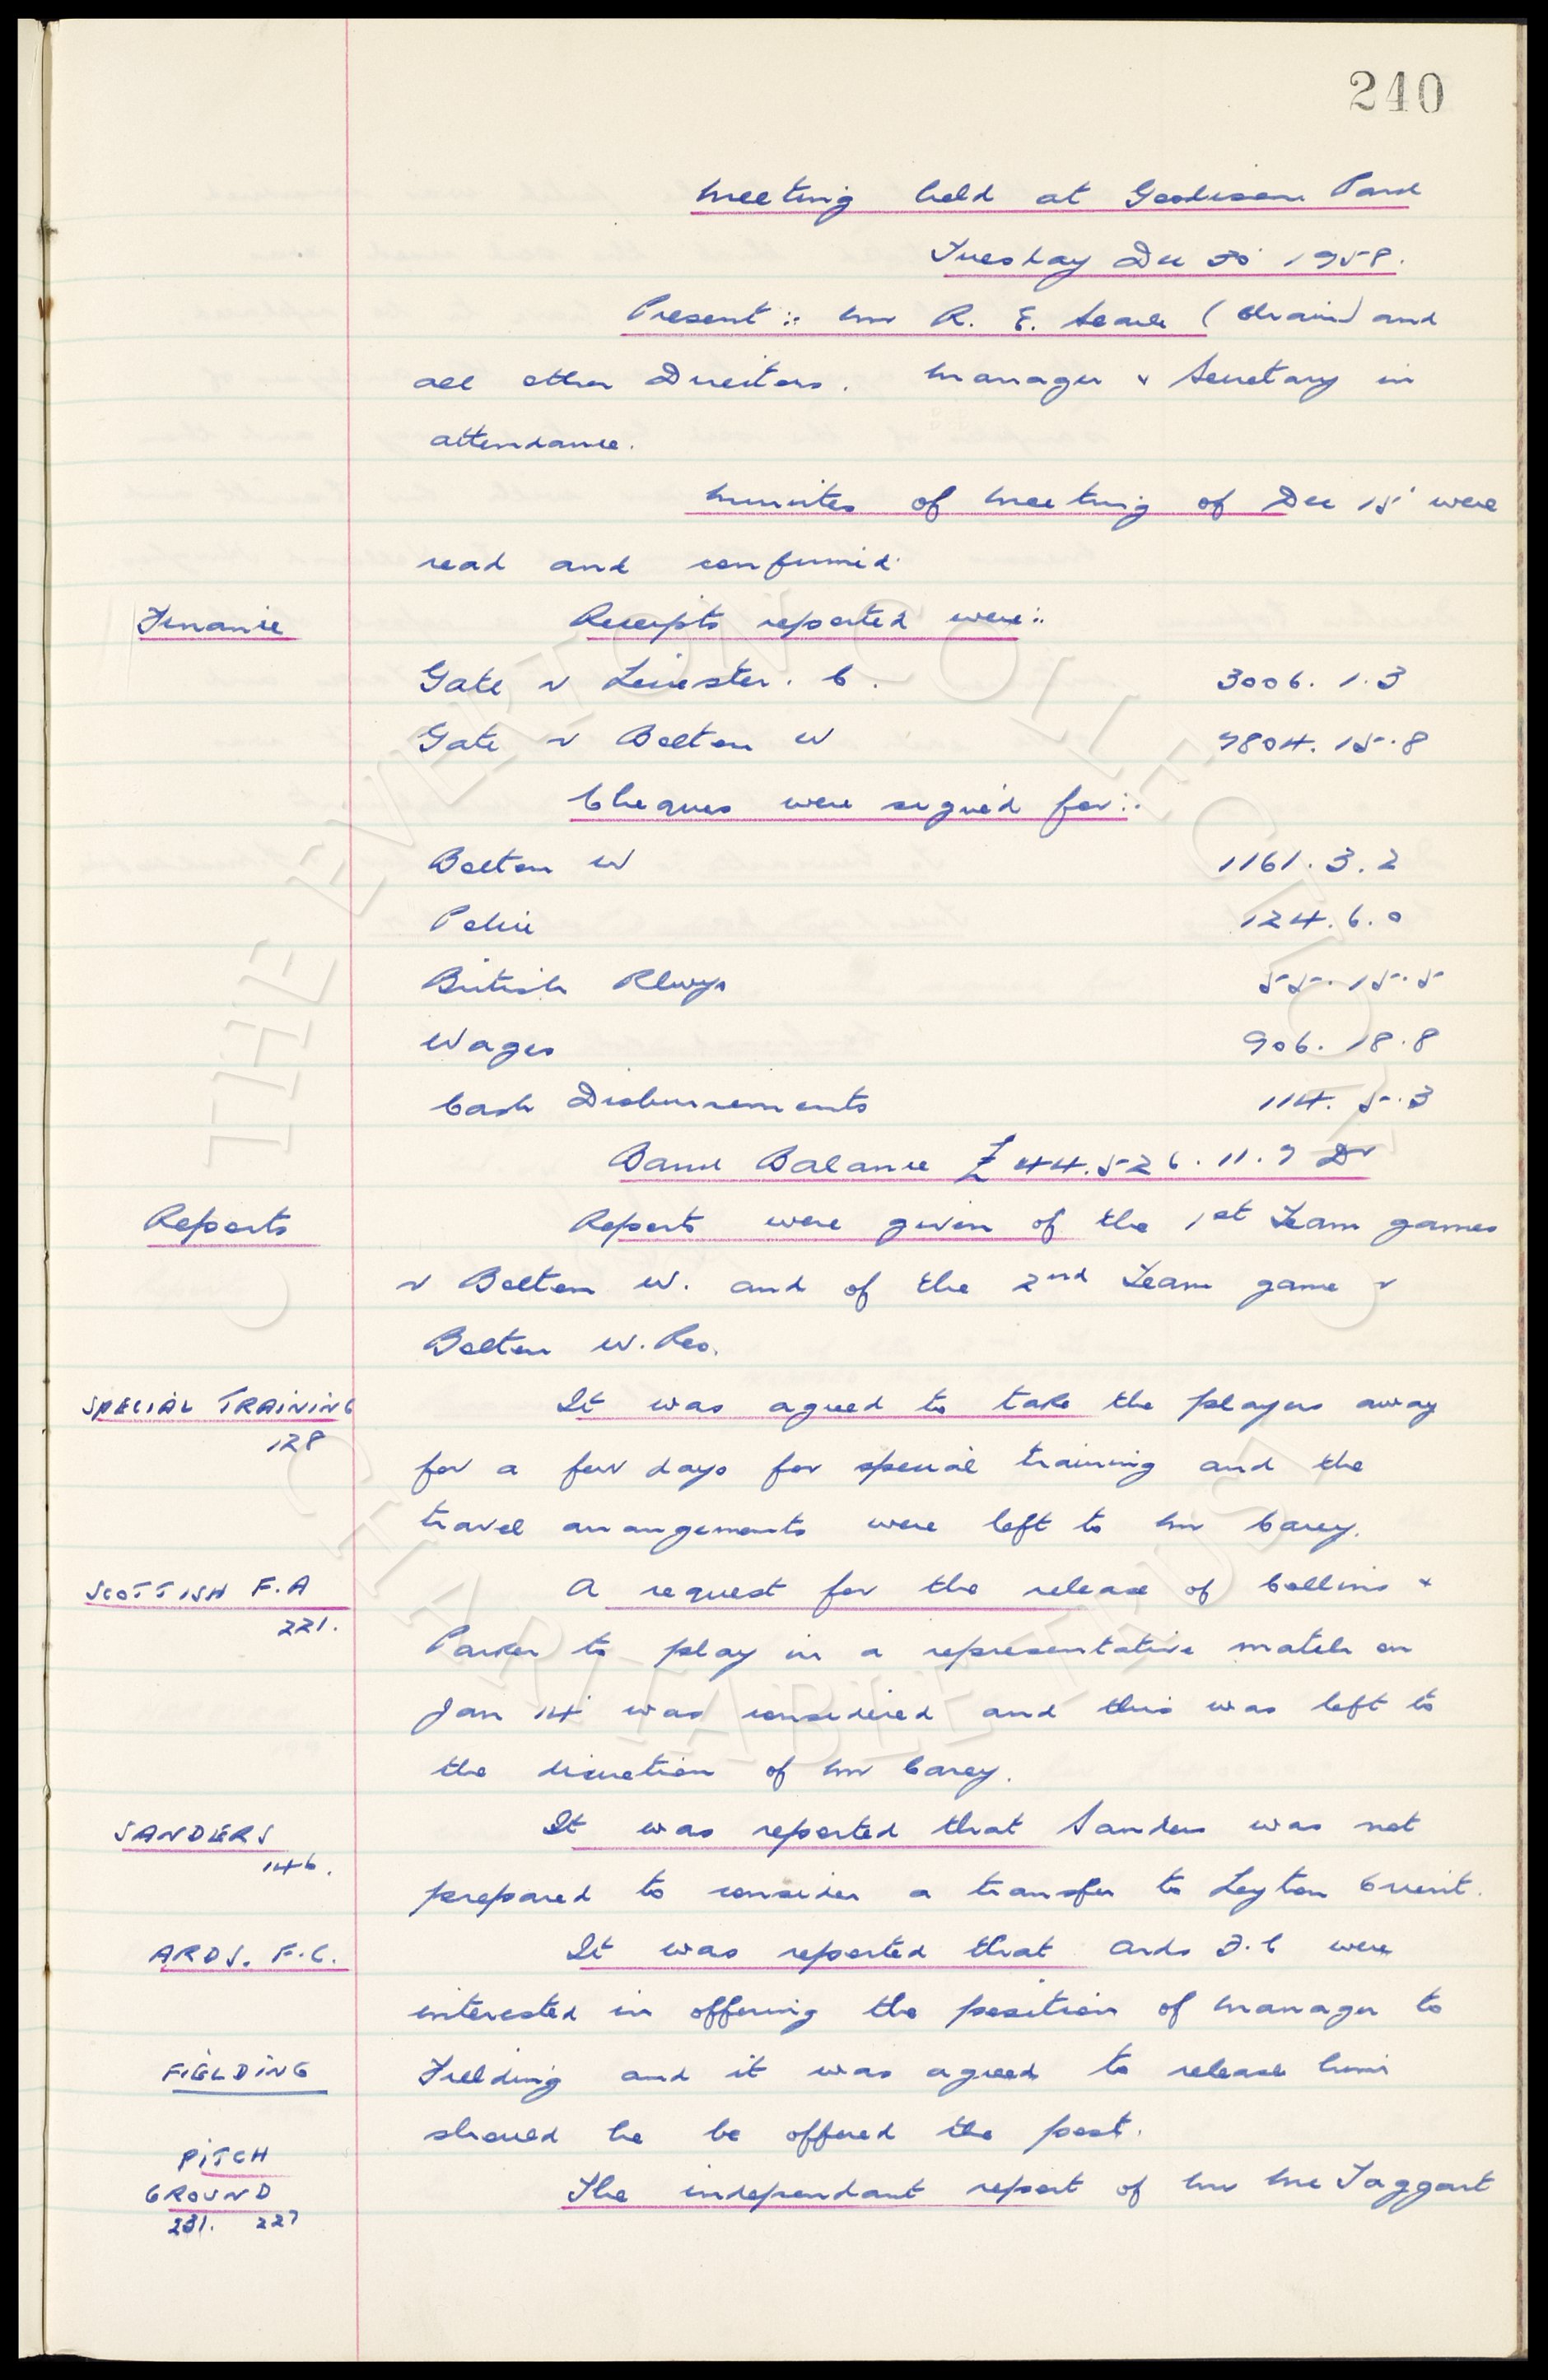 240
Meeting held at Goodison Park
Tuesday Dec 30 1958.
Present:: Mr R. E. Searle (Chair) and
all other Directors. Manager & Secretary in
attendance.
Minutes of Meeting of Dec 15 were
read and confirmed.
Finance
Receipts reported were::
Gate v Leicester. C. 3006. 1. 3
Gate v Bolton W 9804. 15. 8
Cheques were signed for::
Bolton W 1161. 3. 2
Police 124. 6. 0
British Rlwys 55. 15. 5
Wages 906. 18. 8
Cash Disbursements 114. 5. 3
Bank Balance £44.526. 11. 9 Dr
Reports
Reports were given of the 1st Team games
v Bolton W. and of the 2nd Team game v
Bolton W. Res.
SPECIAL TRAINING
128
It was agreed to take the players away
for a few days for special training and the
travel arrangements were left to Mr Carey.
SCOTTISH F.A
221.
A request for the release of Collins &
Parker to play in a representative match on
Jan 14 was considered and this was left to
the discretion of Mr Carey.
SANDERS
146.
It was reported that Sanders was not
prepared to consider a transfer to Leyton Orient.
ARDS. F.C.
It was reported that Ards F.C were
interested in offering the position of Manager to
FIELDING
Fielding and it was agreed to release him
should he be offered the post.
PITCH
GROUND
231. 227
The independant report of Mr McTaggart
THE EVERTON COLLECTION
CHARITABLE TRUST